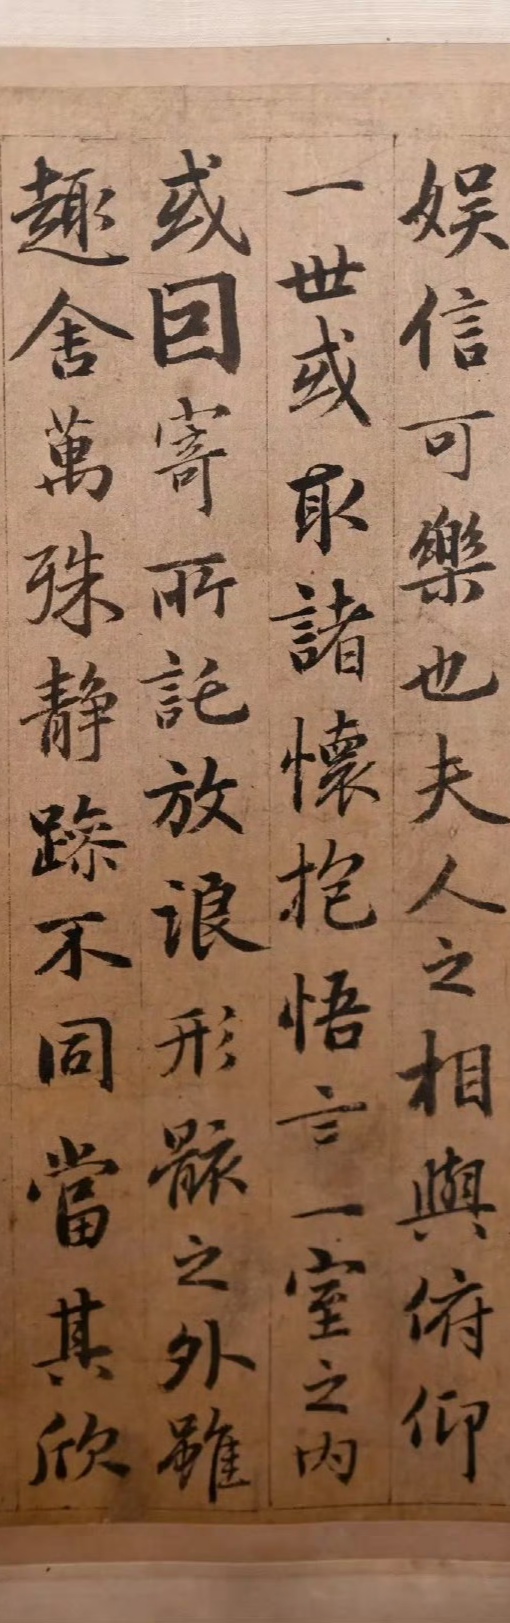 娱信可樂也夫人之相與俯仰
一世或取諸懷抱悟言一室之内
或因寄所託放浪形骸之外雖
趣舍萬殊静躁不同當其欣